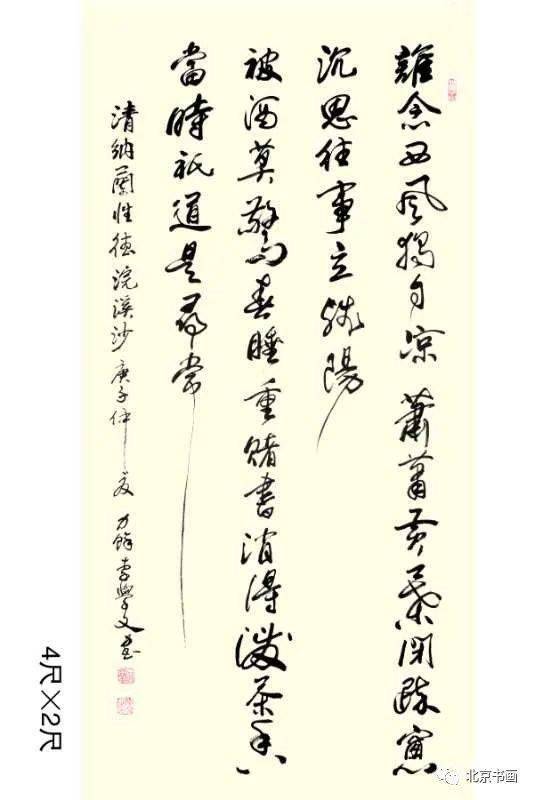 誰念西風獨自凉 蕭蕭黃葉閉疎窗
沉思往事立殘陽
被酒莫驚春睡重賭書消得潑茶香
當時祇道是尋常
清納蘭性德浣溪沙 庚子仲夏 李 文書
4尺×2尺
北京书画